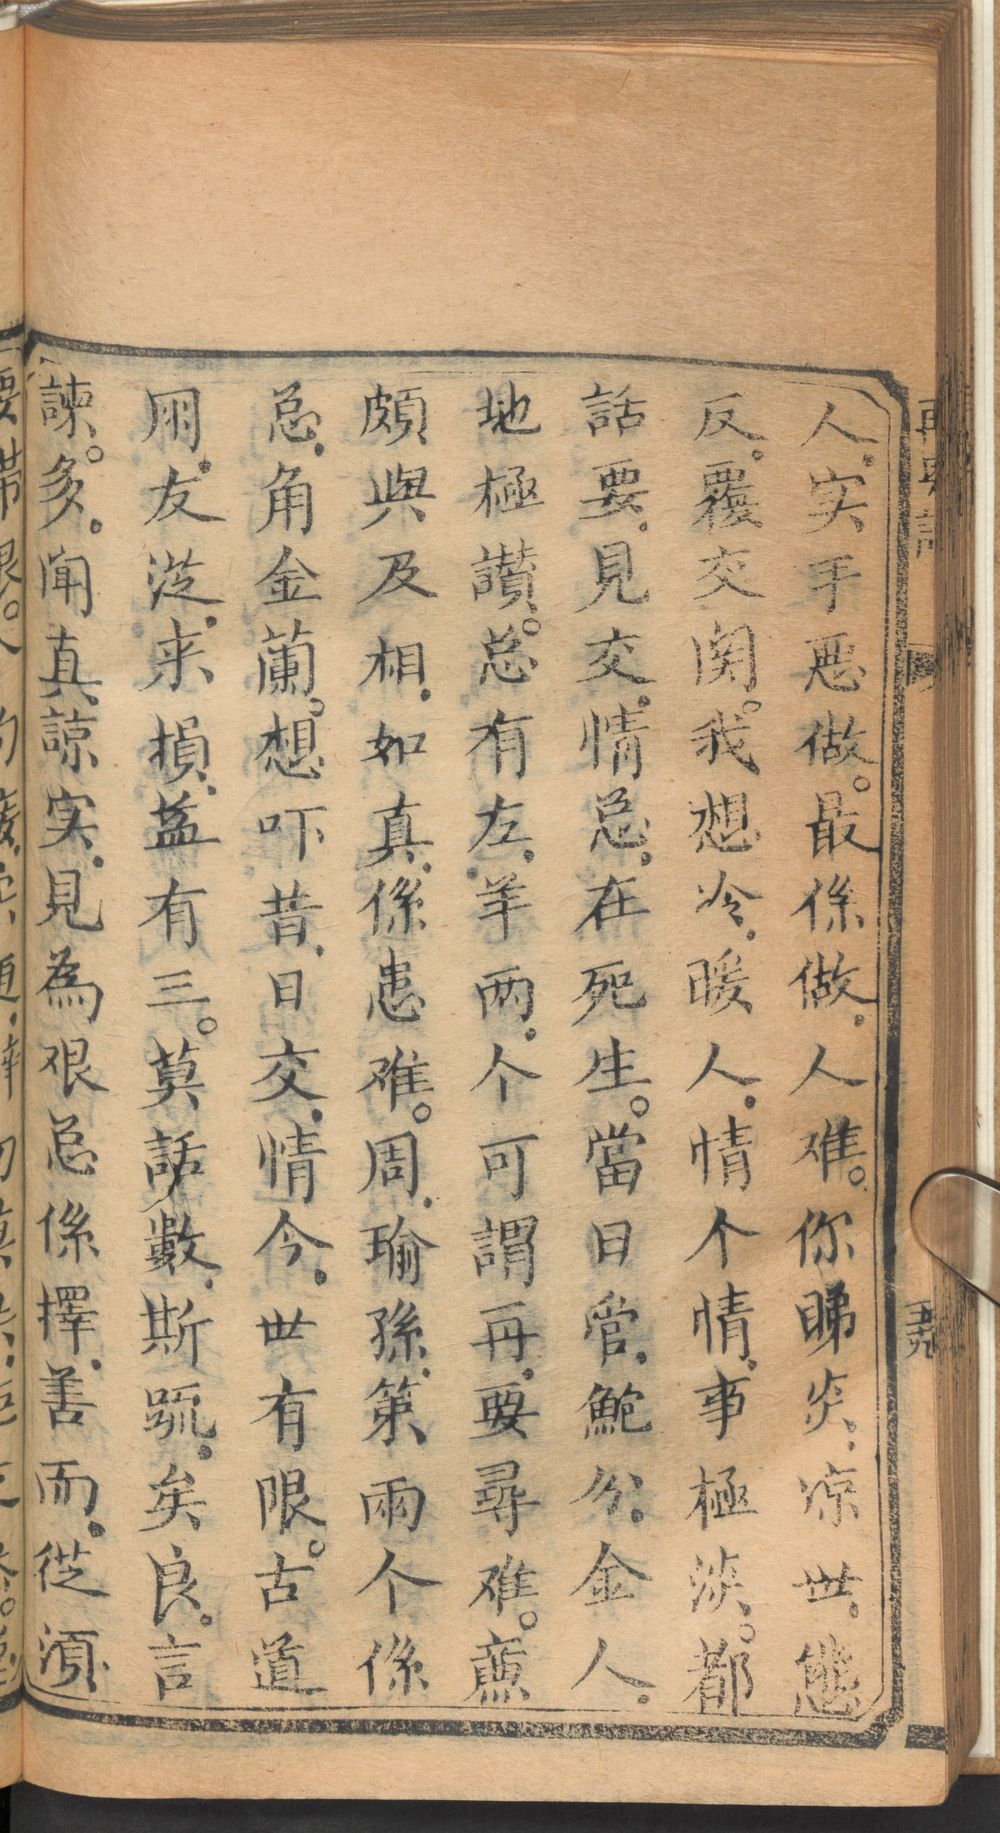 人.实手惡做。最係做.人难。你睇炎.凉世.態
反。覆交関。我想冷.暖人.情个情.事極淡。都
話要.見交.情忌.在死生。當日管.鮑分.金人.
地極讃。忌有左.羊两.个可謂再.要尋难。薦
頗與及相.如真.係患难。周.瑜孫.第兩个係
忌.角金蘭。想吓昔.日交.情今.世有限。古道
用.友. 来損.益有三。莫話數.斯.矣良.言
諫。多.闻真諒实.見為艰忌係擇.善而.從湏
五十九